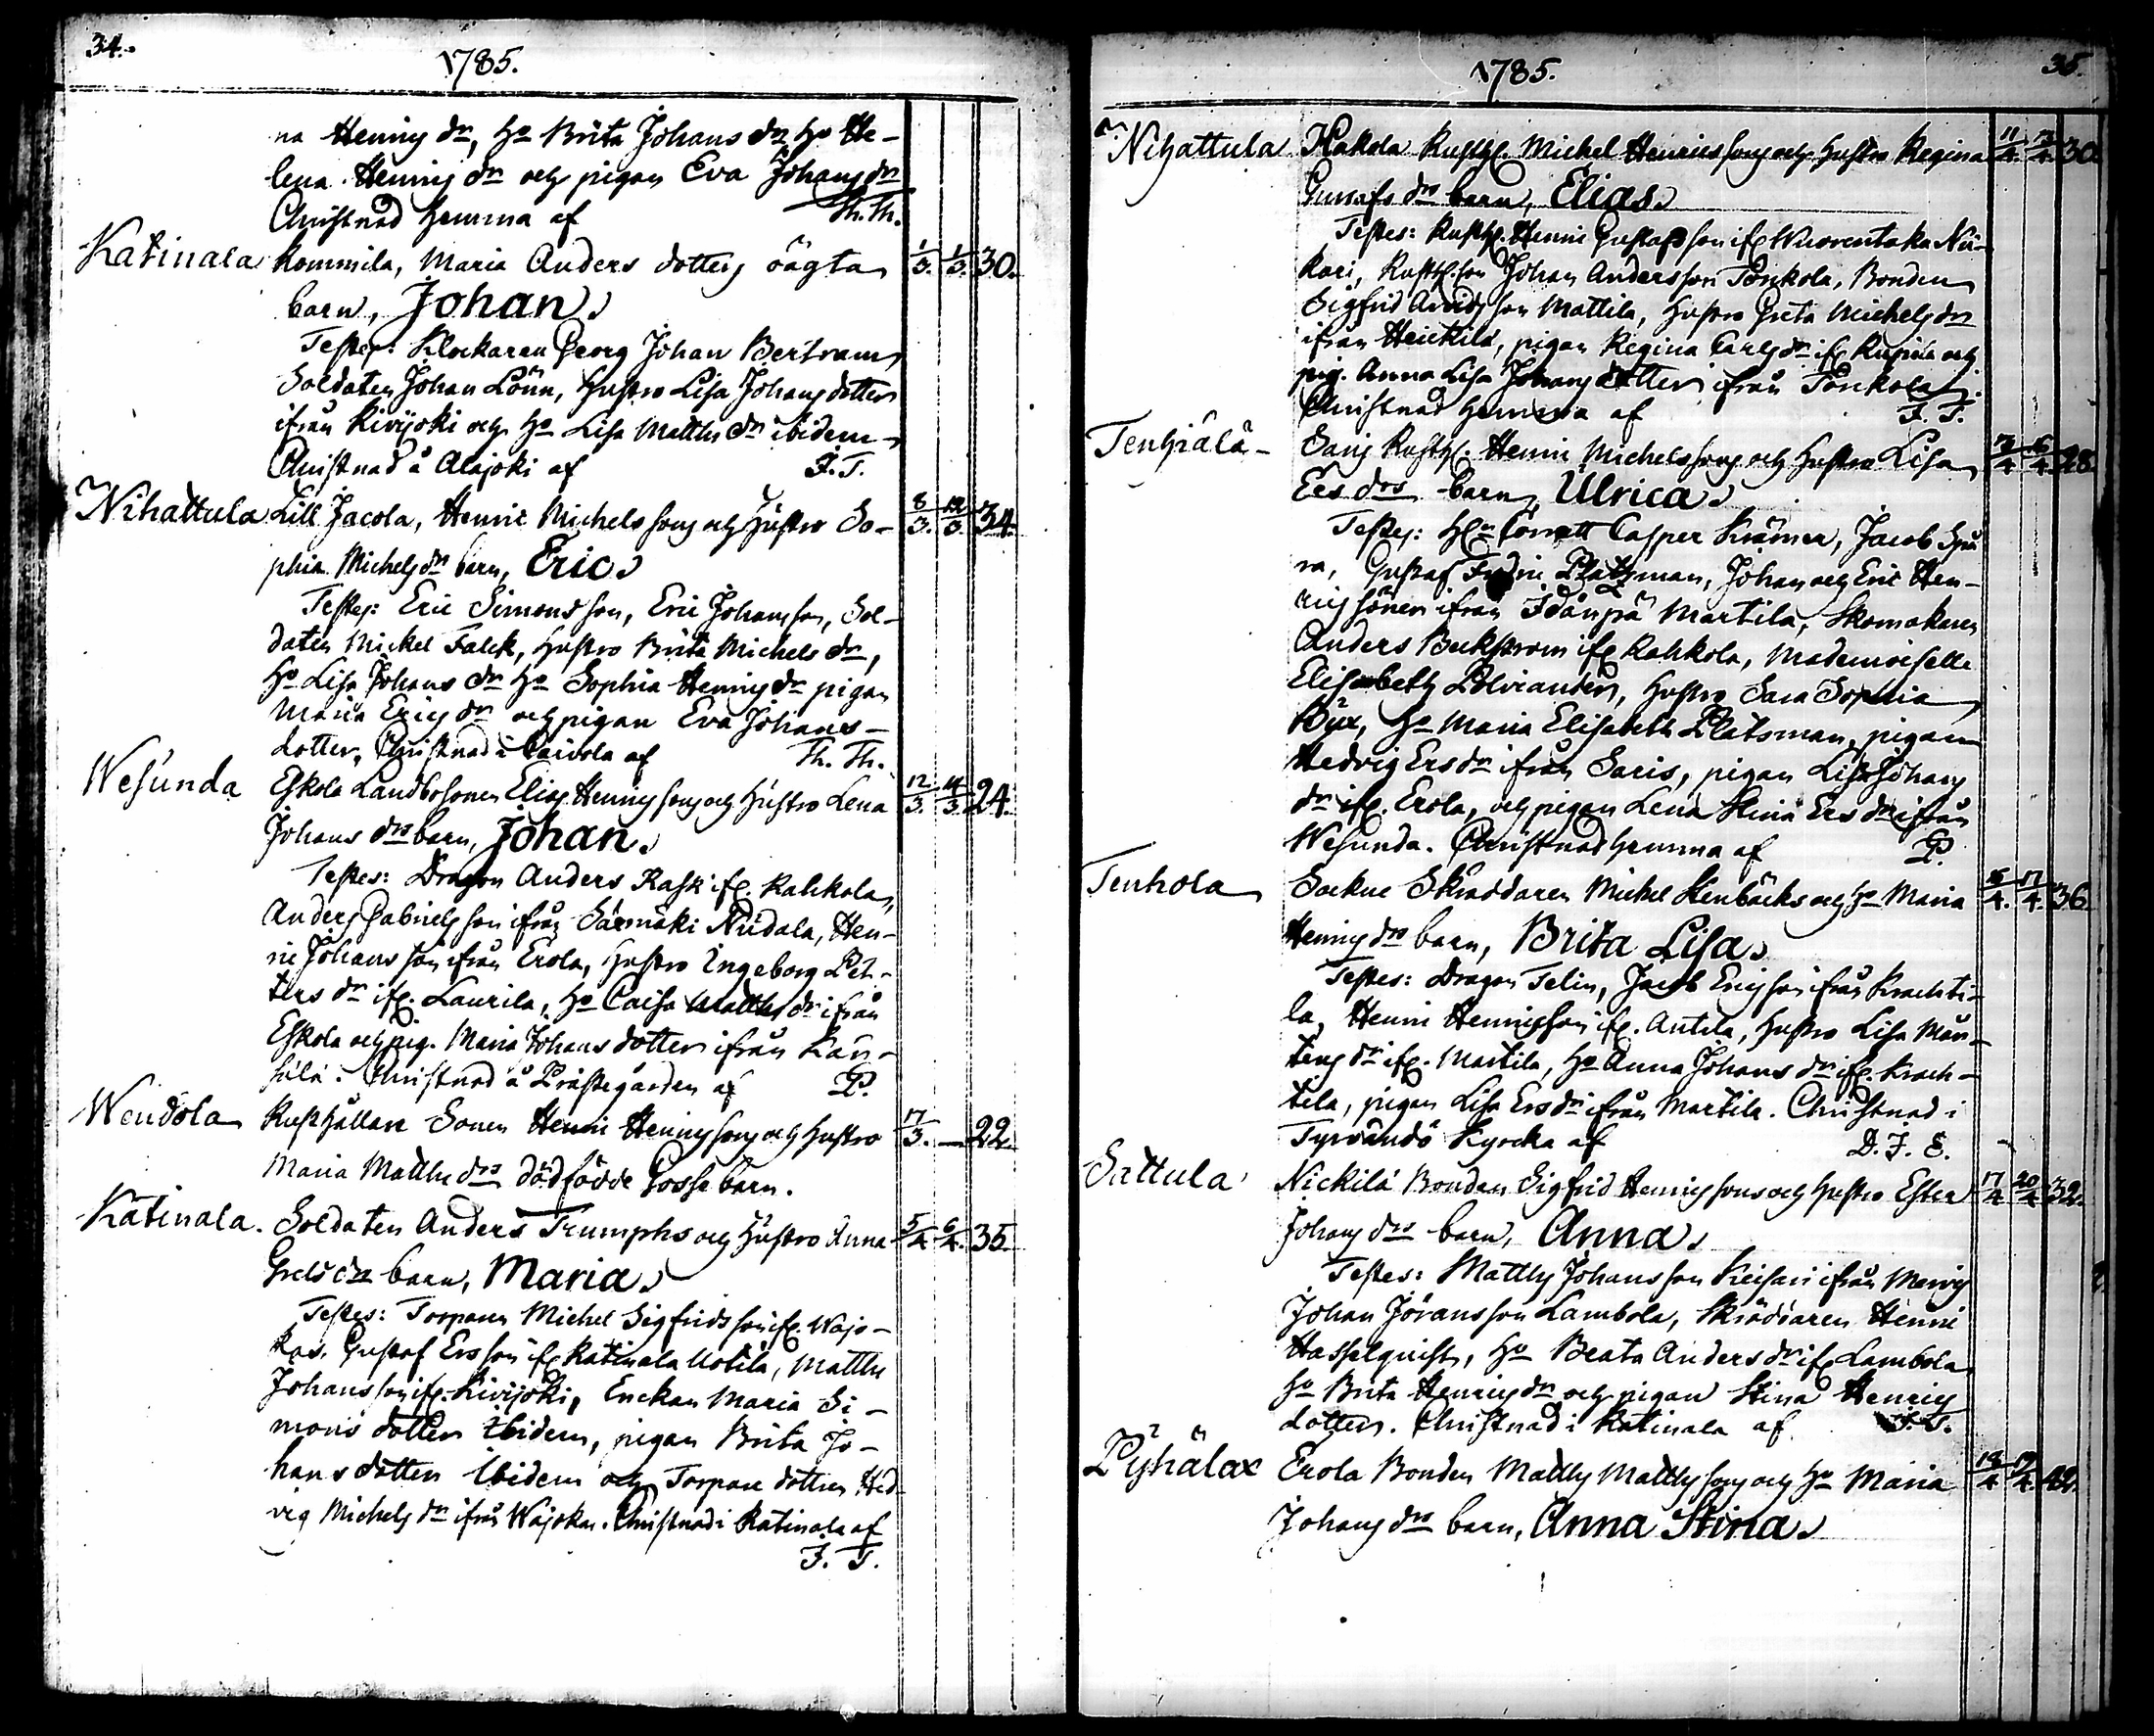 34.
1785.
na Henrics dr, Ho Brita Johans dr Ho He-
lena Henrics dr och pigan Eva Johans dr
Christnad hemma af Th. Th.
Katinala Kommila, Maria Anders dotters oägta 1/3. 1/3. 30.
barn, Johan.
Testes: Klockaren Georg Johan Bertram,
Soldaten Johan Lönn, Hustro Lisa Johans dotter
ifrån Kivijoki och Ho Lisa Matths dr ibidem
Christnad å Alajoki af F. T.
Nihattula Lill Jacola, Henric Michels sons och Hustro So- 8/3. 12/3. 34.
phia Michels dr barn, Eric.
Testes: Eric Simons son, Eric Johans son, Sol-
daten Mickel Falck, Hustro Brita Michels dr,
Ho Lisa Johans dr Ho Sophia Henrics dr pigan
Maria Erics dr och pigan Eva Johans-
dotter, Christnad i Caivola af Th. Th.
Wesunda Eskola Landbosonen Elias Henrics sons och Hustro Lena 12/3. 14/3. 24.
Johans drs barn, Johan.
Testes: Dragon Anders Rask ifr. Kahkola,
Anders Gabriels son ifrån Särmäki Nidala, Hen-
ric Johans son ifrån Erola, Hustro Ingeborg Pet-
ters dr ifr. Laurila, Ho Caisa Matths dr ifrån
Eskola och pig. Maria Johans dotter ifrån Kan-
silä. Christnad å Prästegården af P.
Wendola Rusthållare Sonen Henric Henrics sons och Hustro 17/3. — 22.
Maria Matths drs dödfödde Gosse barn.
Katinala. Soldaten Anders Trumphs och Hustro Anna 5/4 6/4. 35.
Grels drs barn, Maria.
Testes: Torparen Michel Sigfrids son ifr. Wajo-
kas, Gustaf Ers son ifr Katinala Uotila, Matths
Johans son ifr. Kivijoki, Enckan Maria Si-
mons dotter ibidem, pigan Brita Jo-
hans dotter ibidem och Torpare dotter Hed-
vig Michels dr ifrån Wajokas. Christnad i Katinala af
F. T.
35.
1785.
Nihattula Hakola Rusth. Michel Henrics sons och Hustro Regina 11/4. 13/4. 30.
Gustafs drs barn, Elias.
Testes: Rusth. Henric Gustafs son ifr Wuorentaka Nii-
kari, Rusth. son Johan Anders son Tönkola, Bonden
Sigfrid Arvids son Mattila, Hustro Greta Michels dr
ifrån Heickilä, pigan Regina Carls dr ifr Rupila och
pig. Anna Lisa Johans dotter ifrån Tönkola.
Christnad hemma af F. T.
Tenhiälä - Saris Rusth. Henric Michels sons och Hustro Lisa 13/4 16/4 28.
Ers drs barn, Ulrica.
Testes: Casper Krämer, Jacob
ra, Gustaf Fredric Platzman, Johan och Eric Hen-
rics söner ifrån Idänpä Martila, Skomakaren
Anders Beckström ifr Kahkola, Mademoiselle
Elisabeth Polviander, Hustro Sara Sophia
Büx, Ho Maria Elisabeth Platsman, pigan
Hedvig Ers dr ifrån Saris, pigan Lisa Johans
dr ifr. Erola, och pigan Lena Stina Ers dr ifrån
Wesunda. Christnad hemma af P.
Tenhola Sockne Skräddaren Michel Stenbäcks och Ho Maria 16/4. 17/4. 36.
Henrics drs barn, Brita Lisa.
Testes: Dragon Telin, Jacob Erics son ifrån Krachti-
la, Henric Henrics son ifr. Antila, Hustro Lisa Mår-
tens dr ifr. Martila, Ho Anna Johans dr ifr. Krach-
tila, pigan Lisa Ers dr ifrån Martila. Christnad i
Tyrvändö Kyrcka af D. J. E.
Sattula Nickilä Bonden Sigfrid Henrics sons och Hustro Ester 17/4 20/4 32.
Johans drs barn, Anna.
Testes: Matths Johans son Keisari ifrån Mervis
Johan Jörans son Lambola, Skräddaren Henric
Hasselquist, Ho Beata Anders dr ifr Lambola,
Ho Brita Henrics dr och pigan Stina Henrics
dotter. Christnad i Katinala af F. T.
Pyhälax Erola Bonden Matths Matths sons och Ho Maria 18/4 19/4. 42.
Johans drs barn, Anna Stina.